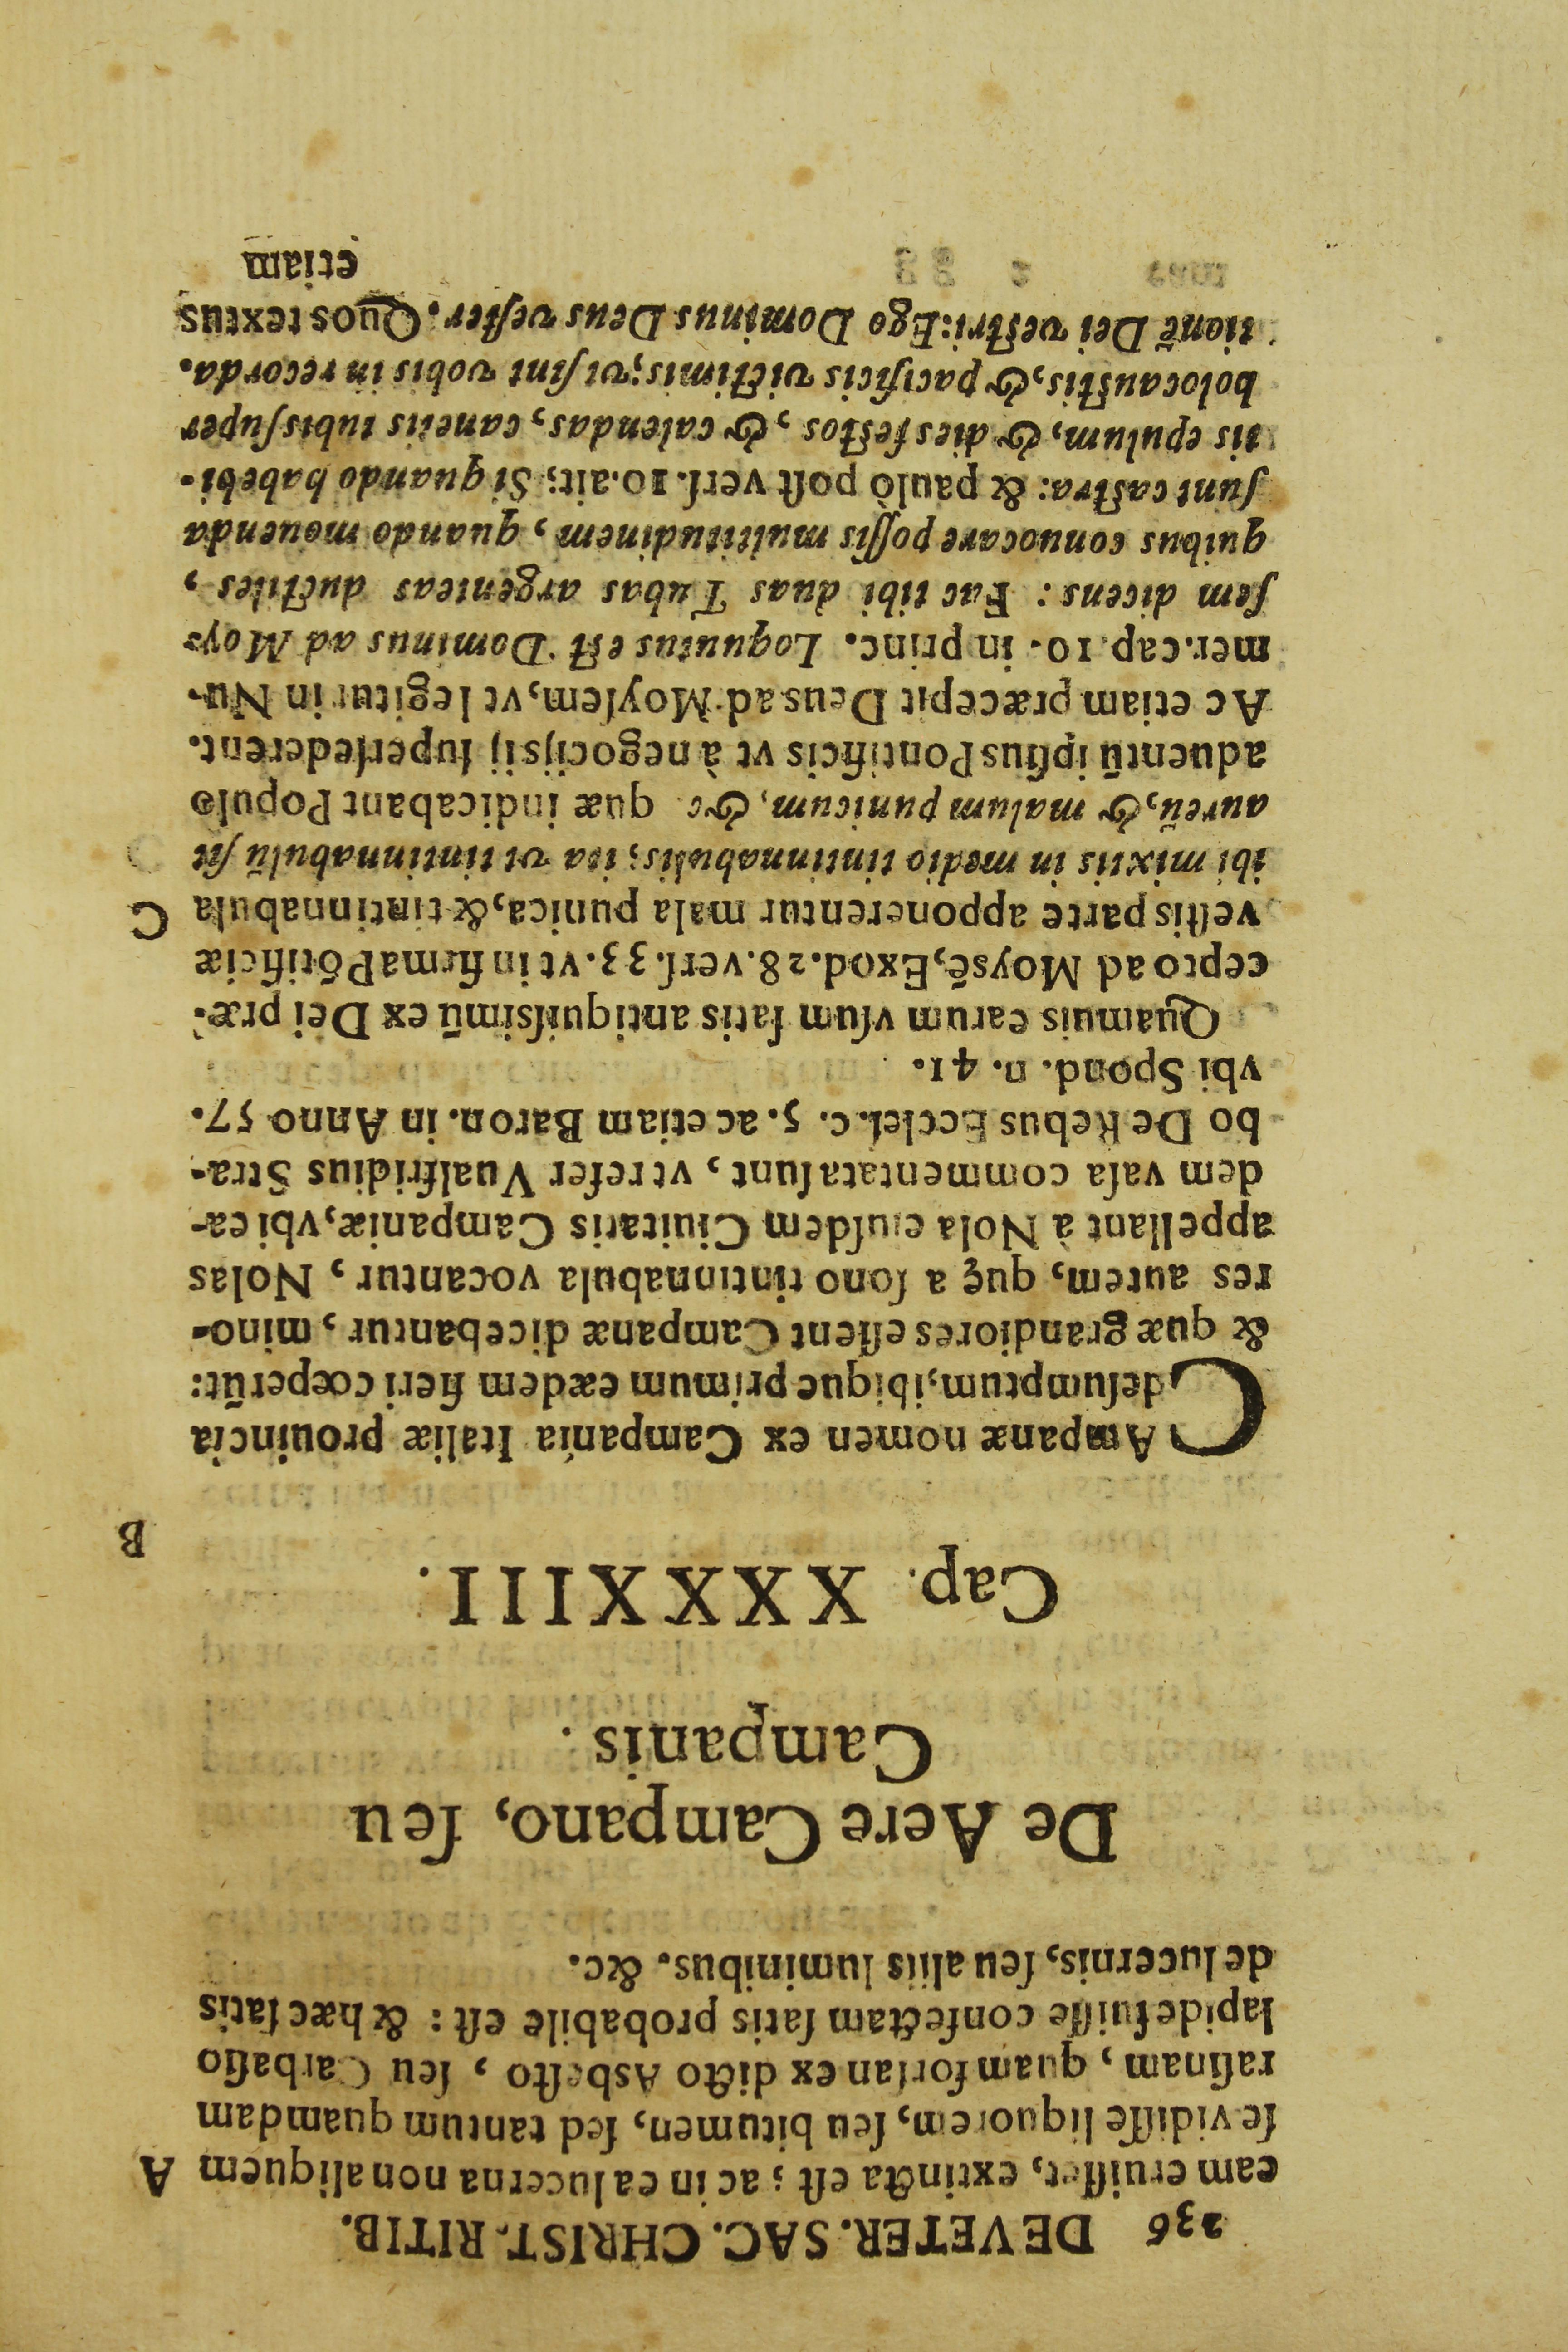 236 DE VETER. SAC. CHRIST. RITIB.
eam eruiſſet, extincta eſt; ac in ea lucerna non aliquem A
ſe vidiſſe liquorem, ſeu bitumen, ſed tantum quamdam
raſinam, quam forſan ex dicto Asbeſto, ſeu Carbaſio
lapide fuiſſe confectam ſatis probabile eſt: & hæc ſatis
de lucernis, ſeu aliis luminibus. &c.
De Aere Campano, ſeu
Campanis.
Cap. XXXXIIII.
B
CAmpanæ nomen ex Campania Italiæ prouincia
deſumptum, ibique primum eædem fieri cœperũt:
& quæ grandiores eſſent Campanæ dicebantur, mino-
res autem, quę a ſono tintinnabula vocantur, Nolas
appellant à Nola eiuſdem Ciuitatis Campaniæ, vbi ea-
dem vaſa commentata ſunt, vt refer Vualfridius Stra-
bo De Rebus Eccleſ. c. 5. ac etiam Baron. in Anno 57.
vbi Spond. n. 41.
Quamuis earum vſum ſatis antiquiſsimũ ex Dei præ-
cepto ad Moysẽ, Exod. 28. verſ. 33. vt in firma Põtificiæ
veſtis parte apponerentur mala punica, & tintinnabula C
ibi mixtis in medio tintinnabulis; ita vt tintinnabulũ ſit
aureũ, & malum punicum, &c quæ indicabant Populo
aduentũ ipſius Pontificis vt à negocijs ij ſuperſederent.
Ac etiam præcepit Deus ad Moyſem, vt legitur in Nu-
mer. cap. 10. in princ. Loquutus eſt Dominus ad Moy-
ſem dicens: Fac tibi duas Tubas argenteas ductiles,
quibus conuocare poſſis multitudinem, quando mouenda
ſunt caſtra: & paulò poſt verſ. 10. ait; Si quando habebi-
tis epulum, & dies feſtos, & calendas, canetis tubis ſuper
holocauſtis, & pacificis victimis; vt ſint vobis in recorda-
tionẽ Dei veſtri: Ego Dominus Deus veſter. Quos textus
etiam